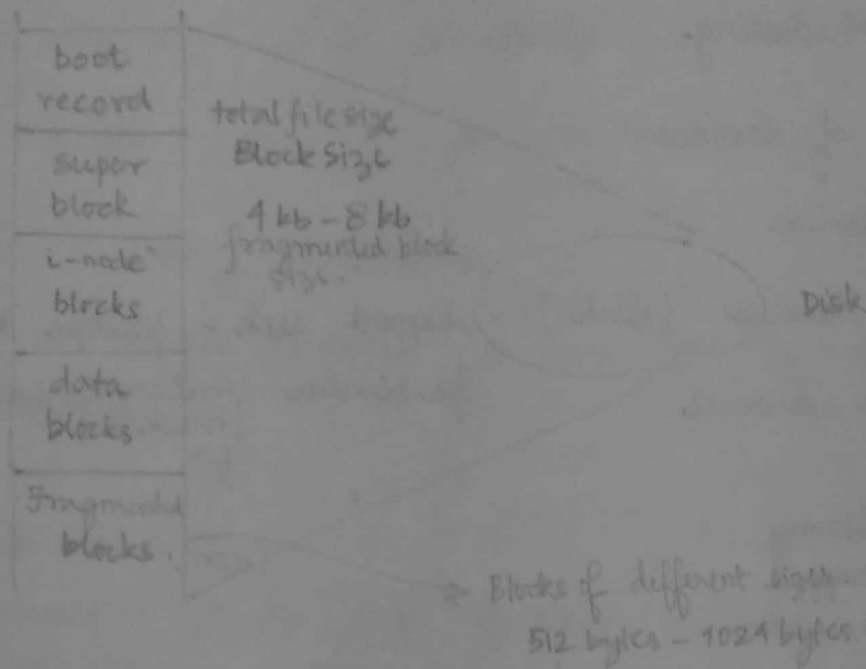 boot
record
super
block
i-node
blocks
data
blocks
Fragmented
blocks.
total file size
Block Size
4 kb - 8 kb
fragmented block
size.
Disk
Blocks of different sizes
512 bytes - 1024 bytes